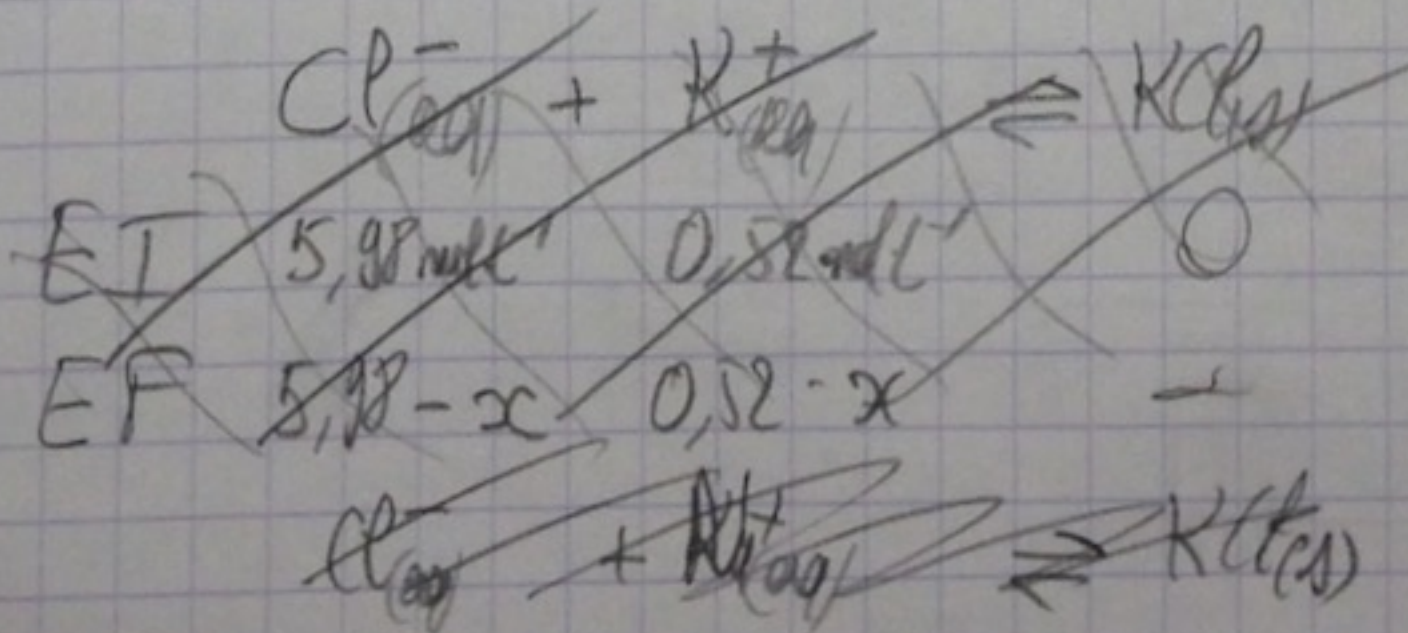 Cl⁻(aq) + K⁺(aq) ⇌ KCl(s)
EI 5,98 mol L⁻¹ 0,52 mol L⁻¹ 0
EF 5,98 - x 0,52 - x -
Cl⁻(aq) + (aq) ⇌ KCl(s)